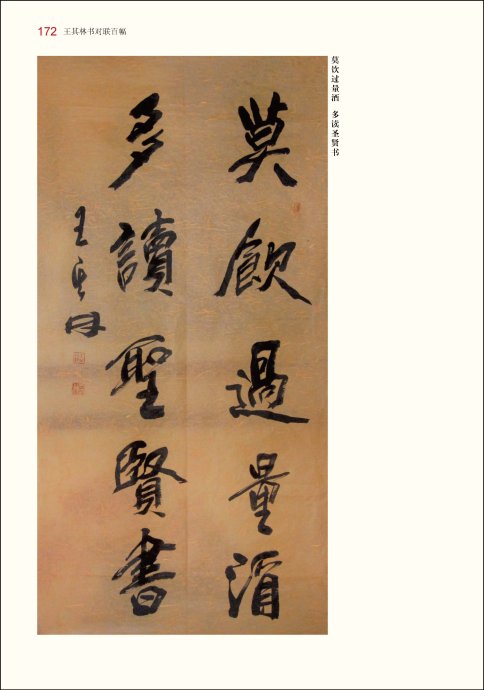 172 王其林书对联百幅
莫饮过量酒 多读圣贤书
莫飲過量酒
多讀聖賢書